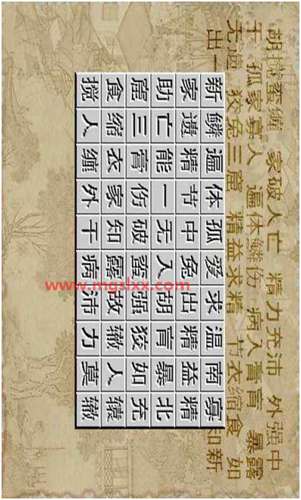 胡搅蛮缠 家破人亡 精力充沛 外强中
干 孤家寡人 遍体鳞伤 病入膏肓 暴露
无遗 狡兔三窟 精益求精 节衣缩食 如
出一
知新
新鳞遍体孤爱求温南寡
家遗精节中兔出精益精
助亡能一无入胡肓暴北
窟三膏伤破蛮强狡如充
食缩衣家知露故辙人辕
搅人缠外干病沛力莫辙
www.mgslxx.com